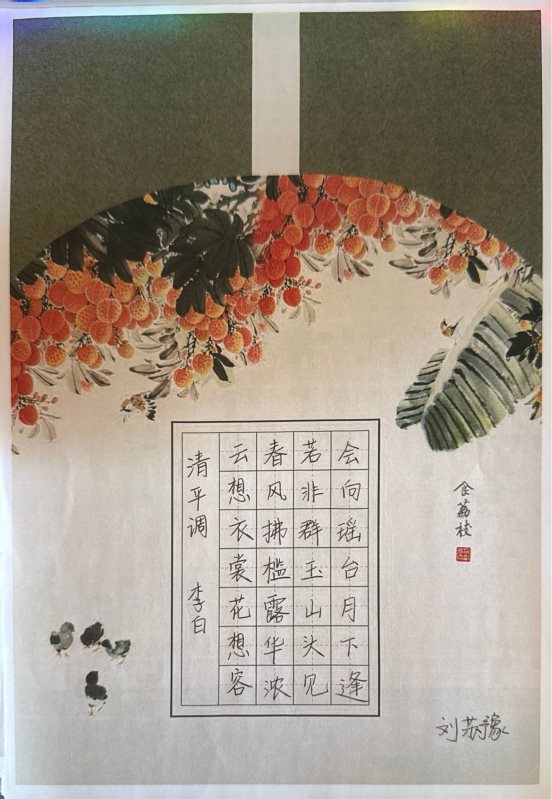 清平调 李白
云想衣裳花想容
春风拂槛露华浓
若非群玉山头见
会向瑶台月下逢
食荔枝
刘苏豫